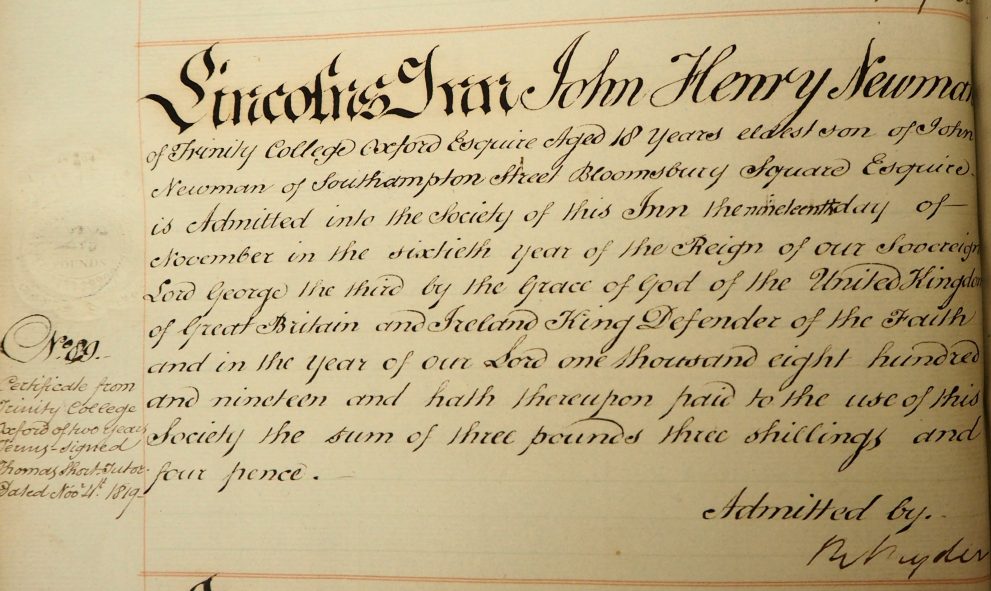 Lincolns Inn John Henry Newman
of Trinity College Oxford Esquire Aged 18 Years eldest son of John
Newman of Southampton Street Bloomsbury Square Esquire.
is Admitted into the Society of this Inn the nineteenth day of
November in the sixtieth year of the Reign of our Sovereign
Lord George the third by the Grace of God of the United Kingdom
of Great Britain and Ireland King Defender of the Faith
and in the year of our Lord one thousand eight hundred
and nineteen and hath thereupon paid to the use of this
Society the sum of three pounds three shillings and
four pence.
Admitted by.
Ryder
No. 89.
Certificate from
Trinity College
Oxford of two Years
Terms - signed
Thomas Short Tutor.
Dated Nov 4th 1819